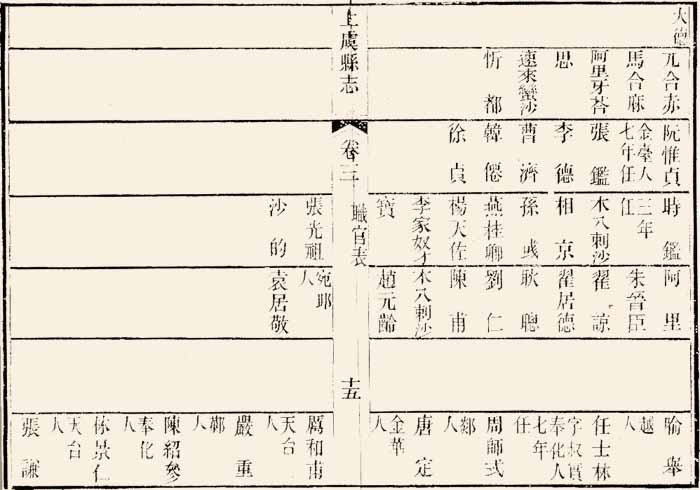 大德
元合赤
馬合麻
阿里牙荅
思
遠來蠻沙
忻都
阮惟貞
金臺人
七年任
張鑑
李德
曹濟
韓僊
徐貞
時鑑
三年
任
木八剌沙
相京
孫彧
燕桂卿
楊天佐
李家奴才
寶
阿里
朱晉臣
翟諒
翟居德
耿聰
劉仁
陳甫
木八剌沙
趙元齡
喻舉
越
人
任士林
字叔寘
奉化人
七年
任
周師式
人
唐定
金華
人
上虞縣志
卷三
職官表
十五
張光祖
沙的
宛邱
人
袁居敬
厲和甫
天台
人
嚴重
鄞
人
陳紹參
奉化
人
林景仁
天台
人
張謙